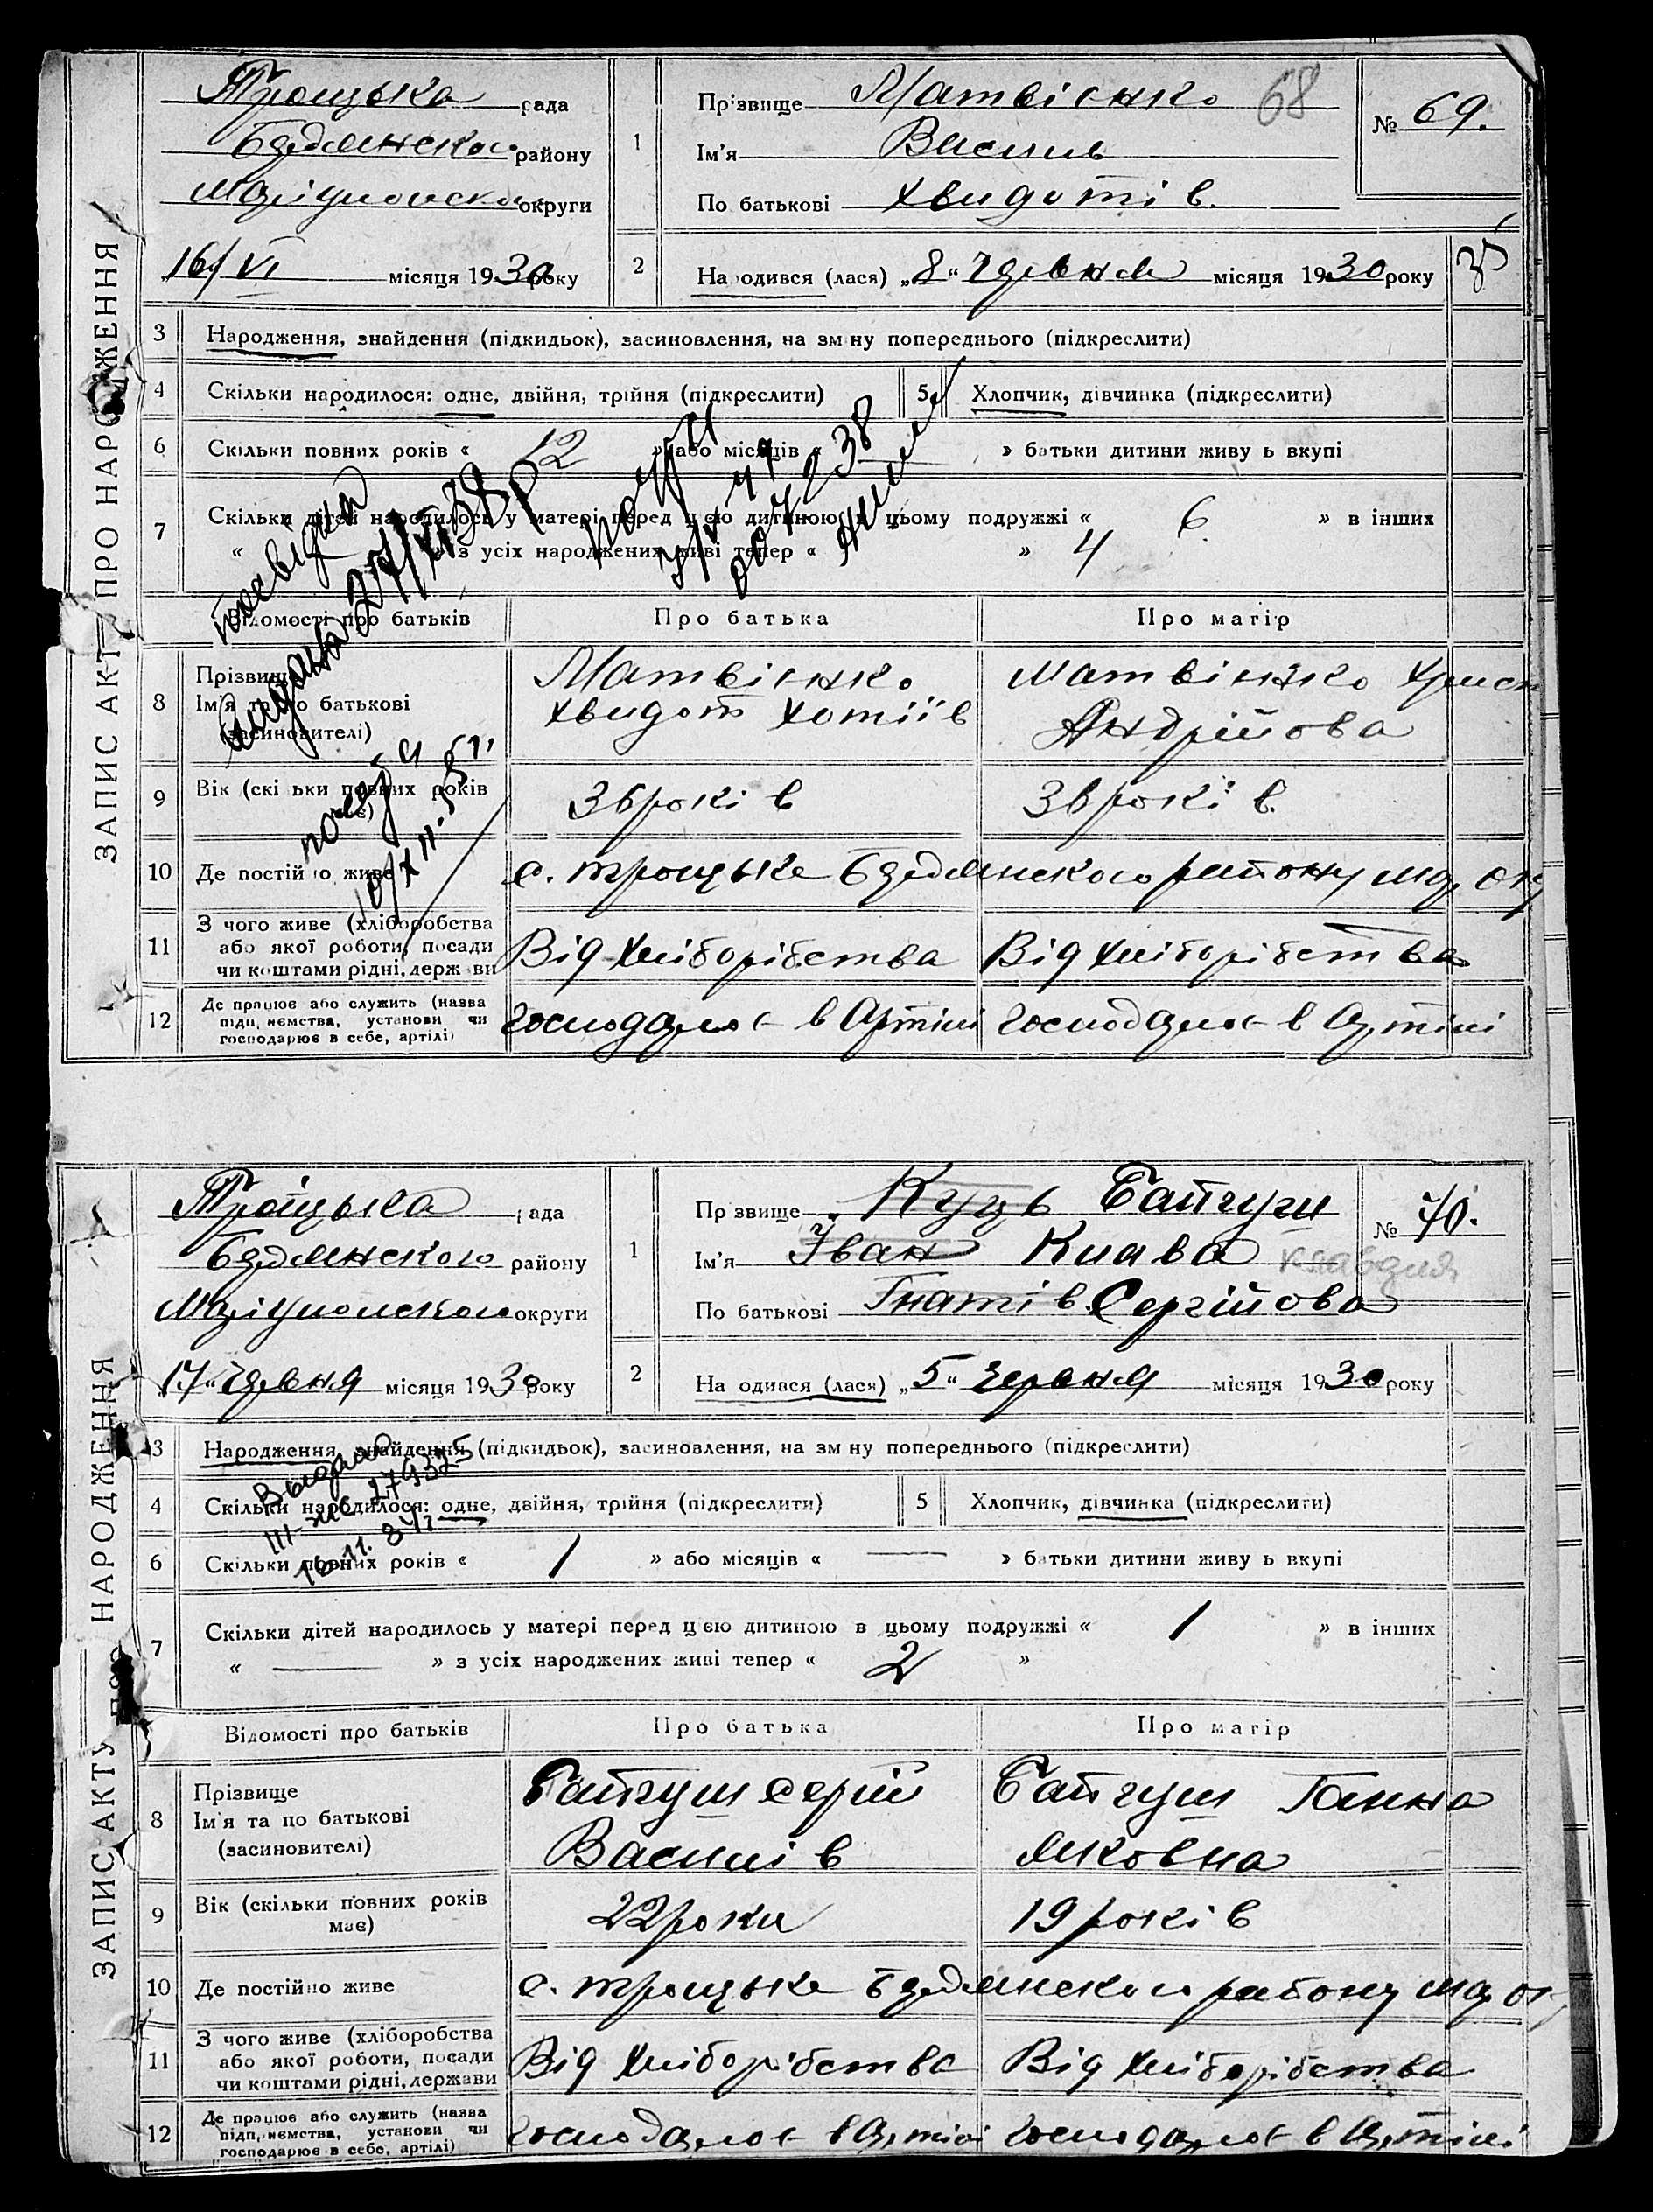 ЗАПИС АКТУ ПРО НАРОДЖЕННЯ
Троцька рада
району
округи
16/VI місяця 1930 року
1
Прізвище Матвієнко
68
Ім'я Василь
По батькові Хвидотів.
№ 69.
2
Народився (лася) „8“ червня місяця 1930 року
35
3 Народження, знайдення (підкидьок), засиновлення, на зміну попереднього (підкреслити)
4 Скільки народилося: одне, двійня, трійня (підкреслити) 5 Хлопчик, дівчинка (підкреслити)
6 Скільки повних років « 12 » або місяців « — » батьки дитини живуть вкупі
7 Скільки дітей народилось у матері перед цією дитиною в цьому подружжі « 6 » в інших
« » з усіх народжених живі тепер « 4 »
посвідка
видана 27/XI 38 р
Відомості про батьків Про батька Про матір
8 Прізвище
Ім'я та по батькові
(засиновителі)
Матвієнко
Хвидот Хотіїв
Матвієнко Христ
Андрійова
9 Вік (скільки повних років має)
36 років
36 років.
10 Де постійно живе
с. Троцьке району
11 З чого живе (хліборобства
або якої роботи, посади
чи коштами рідні, держави
Від хліборібства Від хліборібства
12 Де працює або служить (назва
підприємства, установи чи
господарює в себе, артілі)
господарює в Артілі господарює в Артілі
ЗАПИС АКТУ ПРО НАРОДЖЕННЯ
Троцька рада
району
Маріупольского округи
„17“ червня місяця 1930 року
1
Прізвище Куць Байгуш
Ім'я Іван Клава Клавдия
По батькові Гнатів Сергійова
№ 70.
2
Народився (лася) „5“ червня місяця 1930 року
3 Народження, знайдення (підкидьок), засиновлення, на зміну попереднього (підкреслити)
4 Скільки народилося: одне, двійня, трійня (підкреслити) 5 Хлопчик, дівчинка (підкреслити)
6 Скільки повних років « 1 » або місяців « — » батьки дитини живуть вкупі
7 Скільки дітей народилось у матері перед цією дитиною в цьому подружжі « 1 » в інших
« — » з усіх народжених живі тепер « 2 »
Выдано
279325
Відомості про батьків Про батька Про матір
8 Прізвище
Ім'я та по батькові
(засиновителі)
Байгуш Сергій
Василів
Байгуш Ганна
Яковна
9 Вік (скільки повних років
має)
22 роки
19 років
10 Де постійно живе
с. Троцьке району
11 З чого живе (хліборобства
або якої роботи, посади
чи коштами рідні, держави
Від хліборібства Від хліборібства
12 Де працює або служить (назва
підприємства, установи чи
господарює в себе, артілі)
господарює в Артілі господарює в Артілі